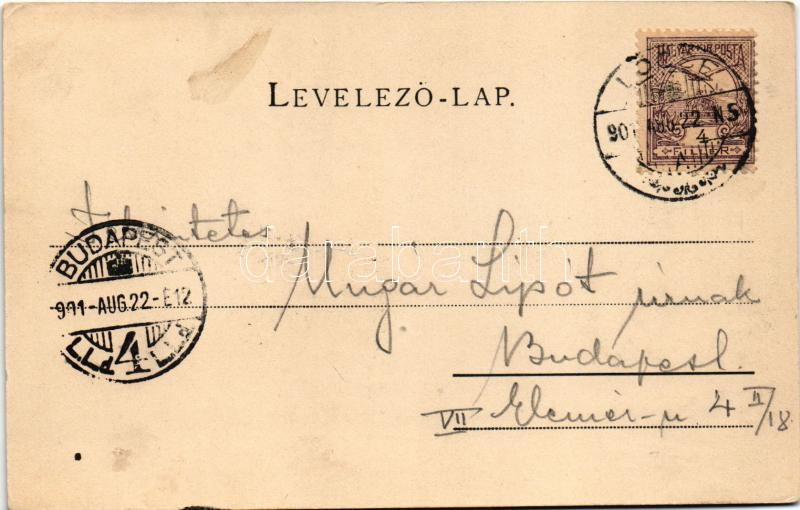 MAGYAR KIR. POSTA
901 AUG. 22 N5
4
FILLÉR
LEVELEZŐ-LAP.
Tekintetes
Ungár Lipót úrnak
Budapest.
VII Elemér-u 4 II/18.
BUDAPEST
901-AUG.22-E12
4
darabanth